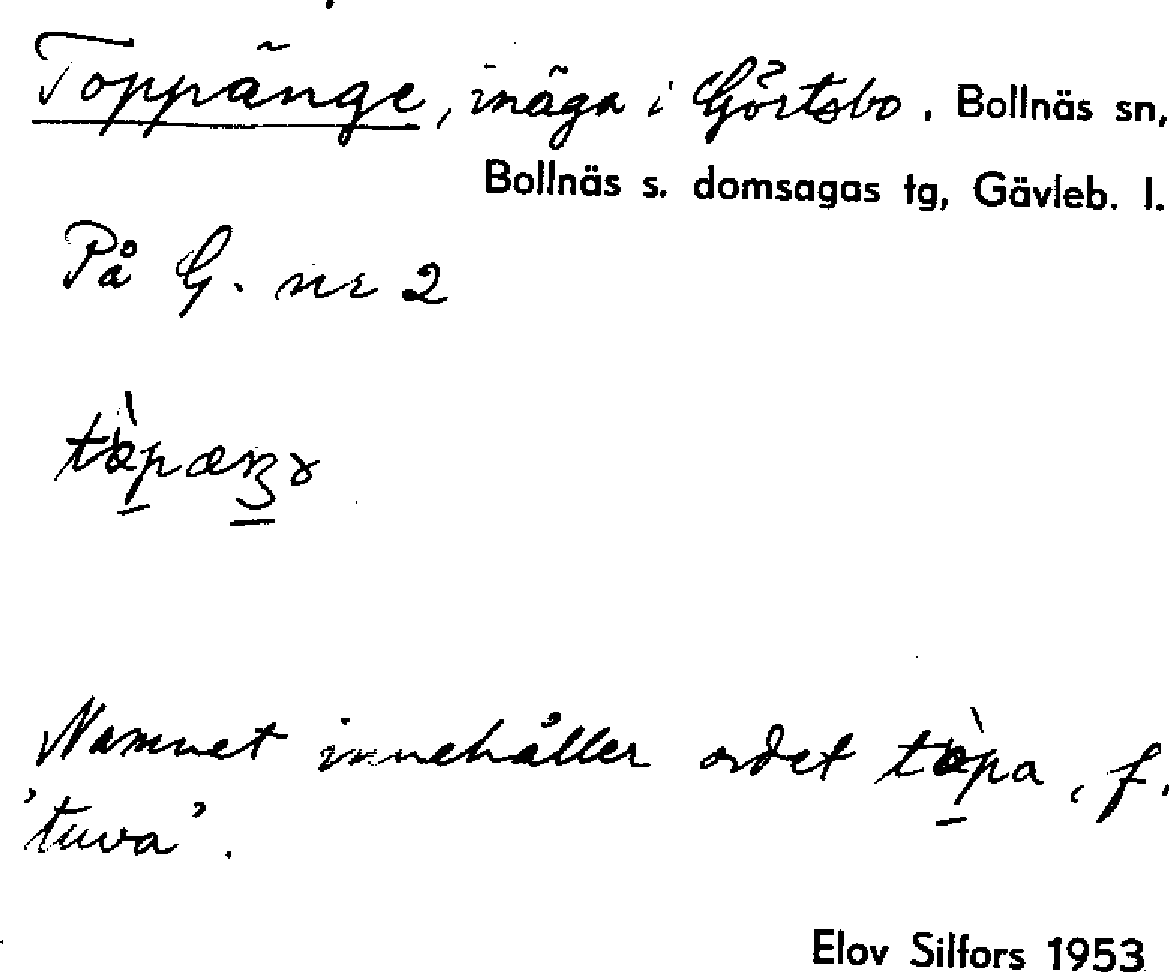 Toppänge, inäga i Görtsbo. Bollnäs sn,
Bollnäs s. domsagas tg, Gävleb. l.
På G. nr 2
Namnet innehåller ordet tɵ̀pa, f.
'tuva'.
Elov Silfors 1953